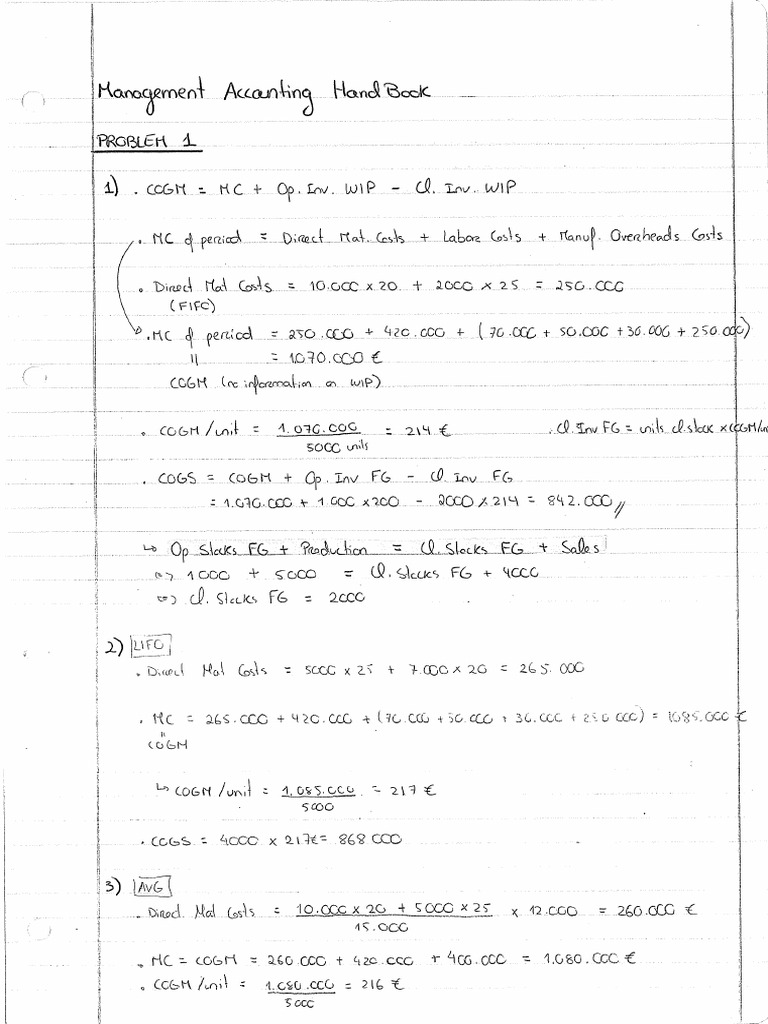 Management Accounting HandBook
PROBLEM 1
1) . COGM = MC + Op. Inv. WIP - Cl. Inv. WIP
. MC of period = Direct Mat. Costs + Labor Costs + Manuf. Overheads Costs
. Direct Mat Costs = 10.000 x 20 + 2000 x 25 = 250.000
(FIFO)
. MC of period = 250.000 + 420.000 + (70.000 + 50.000 + 30.000 + 250.000)
" = 1.070.000 €
COGM (no information on WIP)
. COGM/unit = 1.070.000 = 214 € . Cl. Inv FG = units cl. stock x COGM/un
5000 units
. COGS = COGM + Op. Inv FG - Cl. Inv FG
= 1.070.000 + 1.000 x 200 - 2000 x 214 = 842.000 //
↳ Op Stocks FG + Production = Cl. Stocks FG + Sales
=> 1000 + 5000 = Cl. Stocks FG + 4000
<=> Cl. Stocks FG = 2000
2) LIFO
. Direct Mat Costs = 5000 x 25 + 7.000 x 20 = 265.000
. MC = 265.000 + 420.000 + (70.000 + 50.000 + 30.000 + 250.000) = 1085.000 €
"
COGM
↳ COGM/unit = 1.085.000 = 217 €
5000
. COGS = 4000 x 217€ = 868 000
3) AVG
. Direct Mat Costs = 10.000 x 20 + 5000 x 25 x 12.000 = 260.000 €
15.000
. MC = COGM = 260.000 + 420.000 + 400.000 = 1.080.000 €
. COGM/unit = 1.080.000 = 216 €
5000